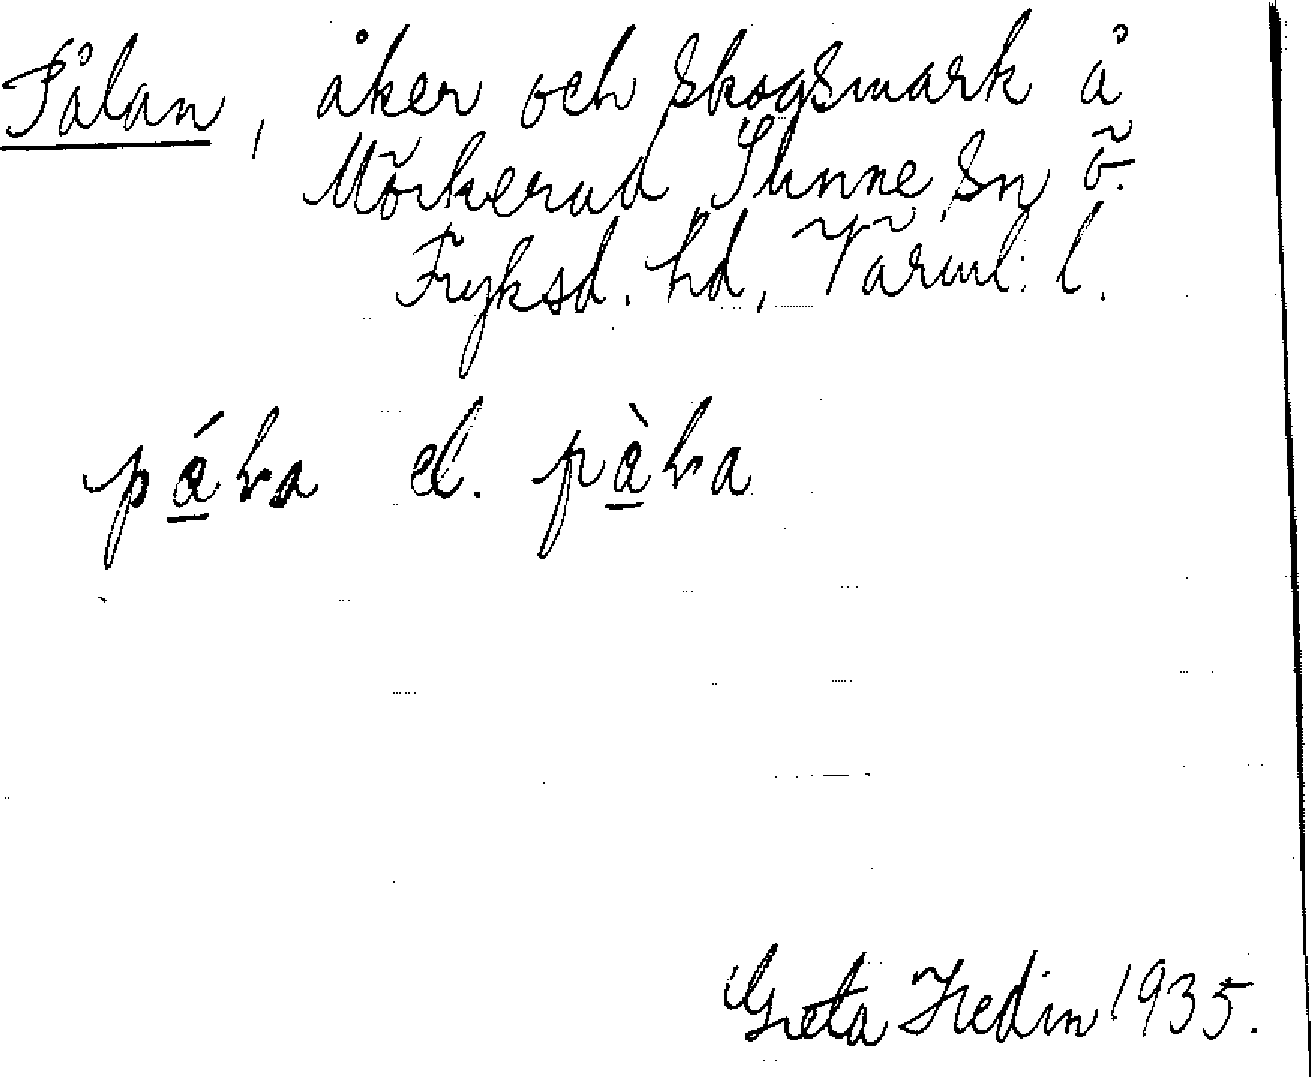 Pålan, åker och skogsmark å
Mörkerud Sunne sn Ö.
Fryksd. hd, Värml. l.
pá̱ɽa el. pà̱ɽa
Greta Hedin 1935.